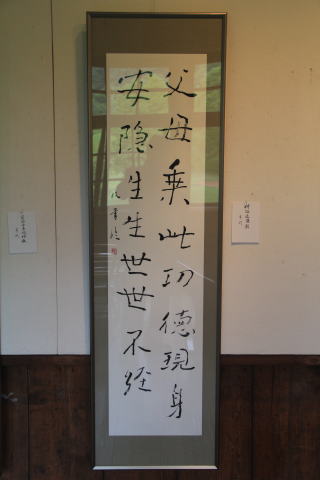 父母乗此功徳現身
安隠生生世世不経